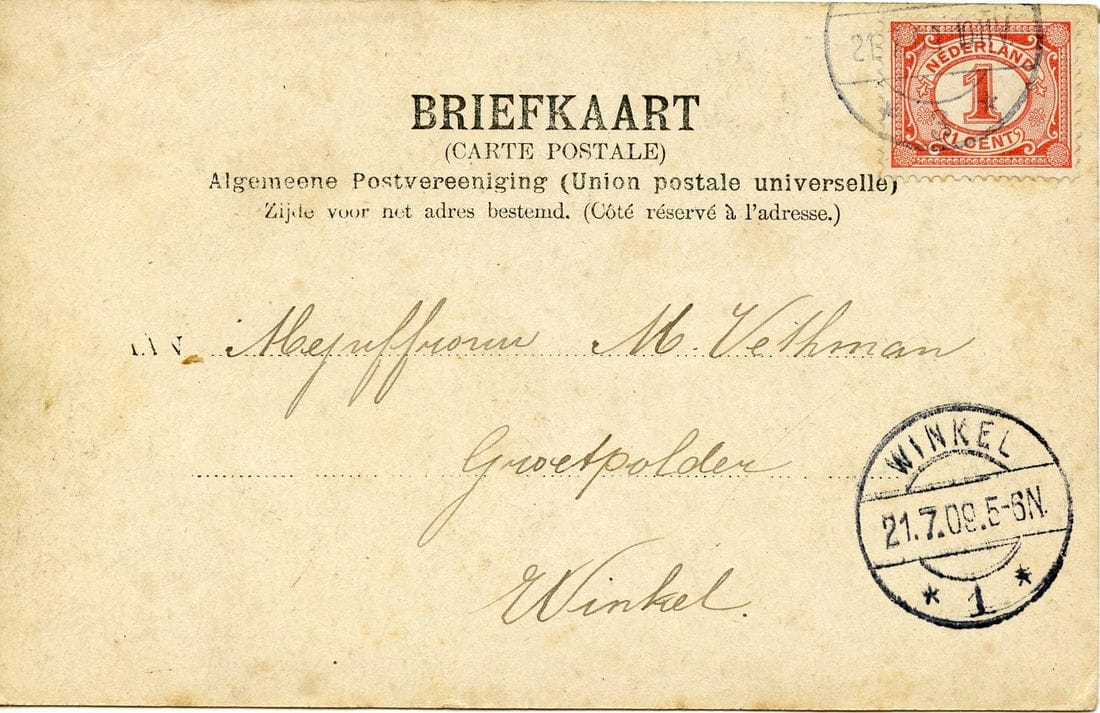 NEDERLAND
1
1 CENT
BRIEFKAART
(CARTE POSTALE)
Algemeene Postvereeniging (Union postale universelle)
Zijde voor het adres bestemd. (Côté réservé à l'adresse.)
Mejuffrouw M. Vethman
Groetpolder
Winkel.
WINKEL
21.7.09.5-6N.
* 1 *